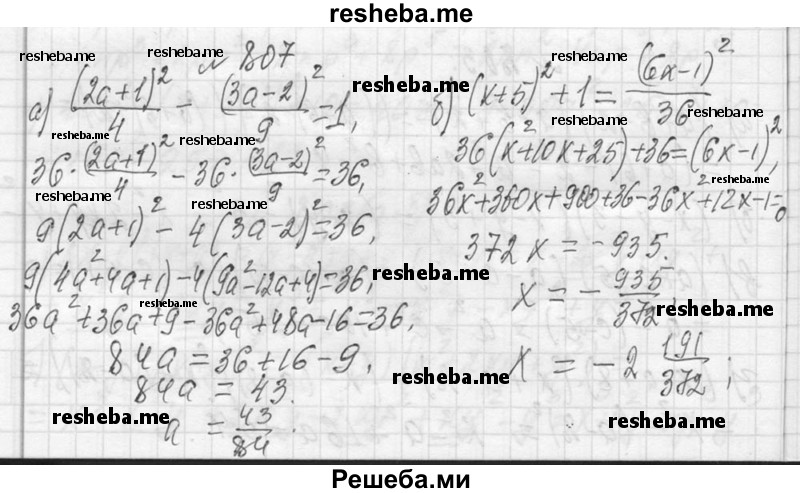 resheba.me
№ 807
а) (2a+1)²/4 − (3a−2)²/9 = 1,
36·(2a+1)²/4 − 36·(3a−2)²/9 = 36,
9(2a+1)² − 4(3a−2)² = 36,
9(4a²+4a+1)−4(9a²−12a+4)=36,
36a²+36a+9−36a²+48a−16=36,
84a = 36+16−9,
84a = 43.
a = 43/84.
б) (x+5)² + 1 = (6x−1)²/36
36(x²+10x+25)+36=(6x−1)²,
36x²+360x+900+36−36x²+12x−1=0
372x = −935.
x = − 935/372
x = −2 191/372;
resheba.me
resheba.me
resheba.me
resheba.me
resheba.me
resheba.me
resheba.me
resheba.me
resheba.me
resheba.me
resheba.me
resheba.me
resheba.me
resheba.me
Решеба.ми